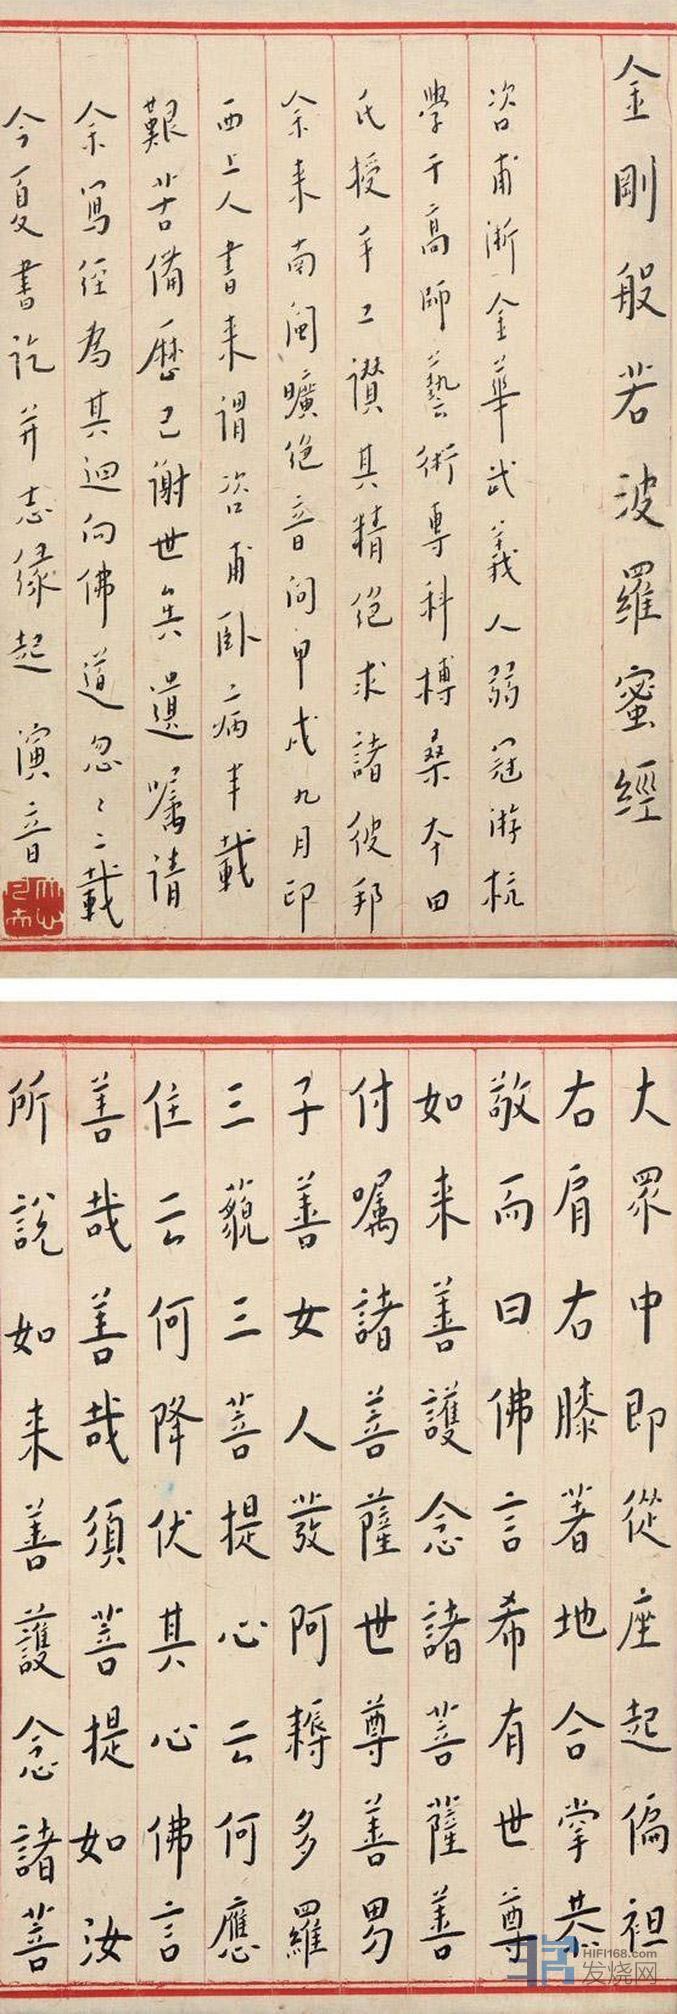 金剛般若波羅蜜經
咨甫浙金華武義人弱冠游杭
學于高師藝術專科搏桑本田
氏授手工讚其精絕求諸彼邦
余来南閩曠絕音问甲戌九月印
西上人書来謂咨甫卧病半載
艱苦備歷已謝世矣遺嘱請
余寫經為其迴向佛道忽忽二載
今夏書訖并志緣起 演音
大眾中即從座起偏袒
右肩右膝著地合掌恭
敬而曰佛言希有世尊
如来善護念諸菩薩善
付嘱諸菩薩世尊善男
子善女人發阿耨多羅
三藐三菩提心云何應
住云何降伏其心佛言
善哉善哉須菩提如汝
所說如来善護念諸菩
HIFI168.com
发烧网